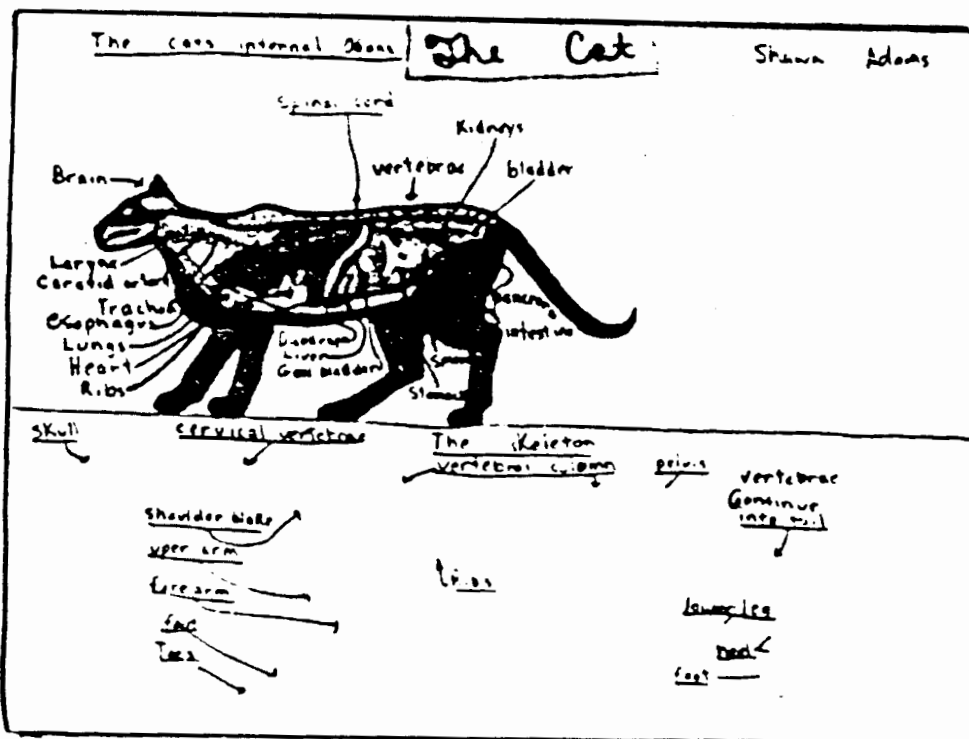 The cats internal
The Cat
Shawn Adams
Spinal cord
Kidneys
vertebrae
bladder
Brain
Larynx
Carotid artery
Trachea
esophagus
Lungs
Heart
Ribs
Liver
Gall bladder
intestine
Skull
cervical vertebrae
The skeleton
vertebral column
pelvis
vertebrae
Continue
into tail
shoulder blade
uper arm
forearm
Toes
Ribs
lower leg
foot